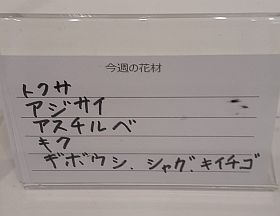 今週の花材
トクサ
アジサイ
アスチルベ
キク
ギボウシ、シャガ、キイチゴ